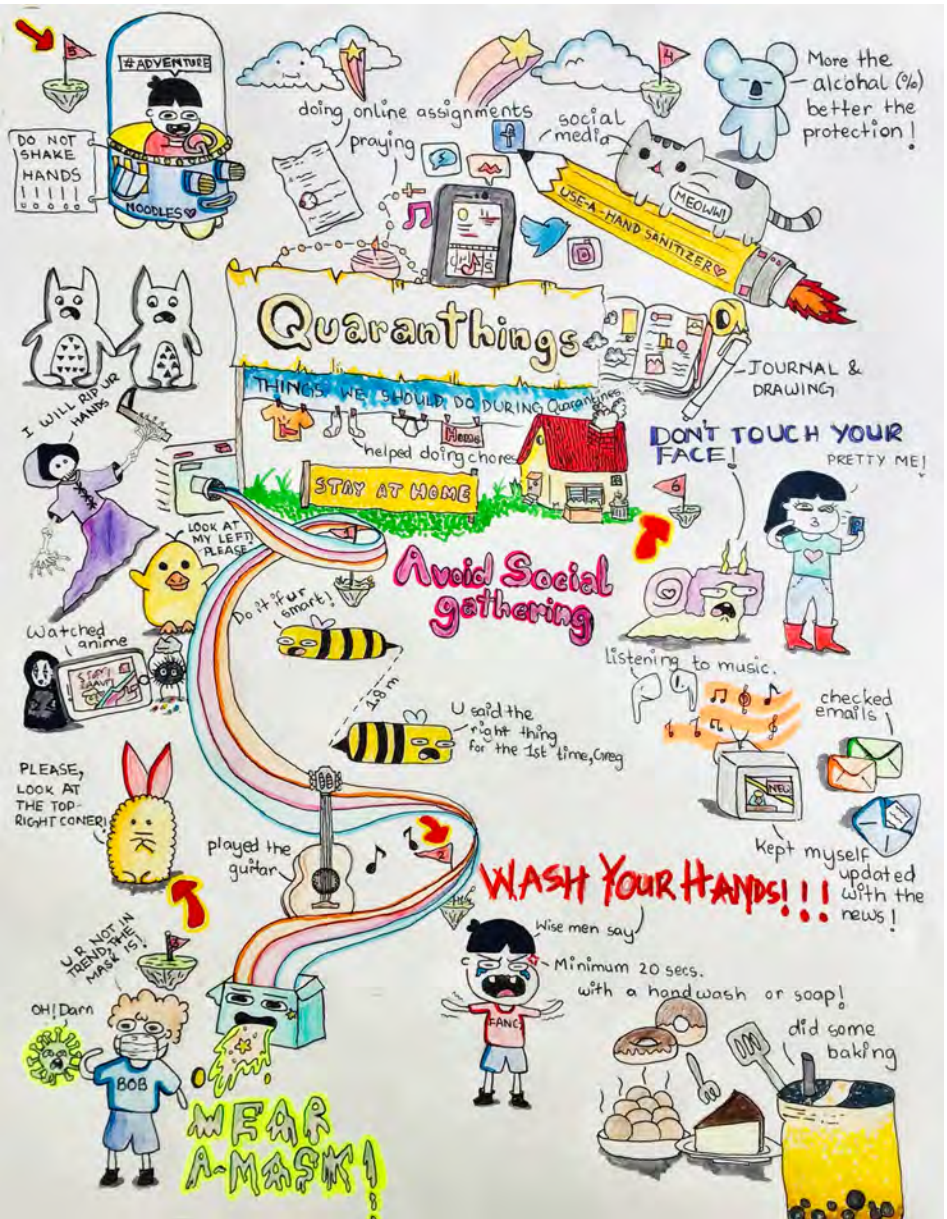 5
#ADVENTURE
DO NOT
SHAKE
HANDS
! ! ! ! !
NOODLES♡
doing online assignments
praying
social
media
4
More the
alcohal (%)
better the
protection!
MEOWW!
USE-A-HAND SANITIZER♡
Quaranthings
THINGS WE SHOULD DO DURING Quarantines.
Home
helped doing chores
STAY AT HOME
JOURNAL &
DRAWING
I WILL RIP UR
HANDS
DON'T TOUCH YOUR
FACE!
PRETTY ME!
6
LOOK AT
MY LEFT,
PLEASE
1
Avoid Social
gathering
Do it if ur
smart!
1.8 m
U said the
right thing
for the 1st time, Greg
Watched
anime
listening to music.
checked
emails
NEW
kept myself
updated
with the
news!
PLEASE,
LOOK AT
THE TOP-
RIGHT CONER!
played the
guitar
2
WASH YOUR HANDS!!!
Wise men say
Minimum 20 secs.
with a handwash or soap!
FANCY
3
U R NOT IN
TREND, THE
MASK IS!
OH! Darn
BOB
WEAR
A-MASK!
did some
baking